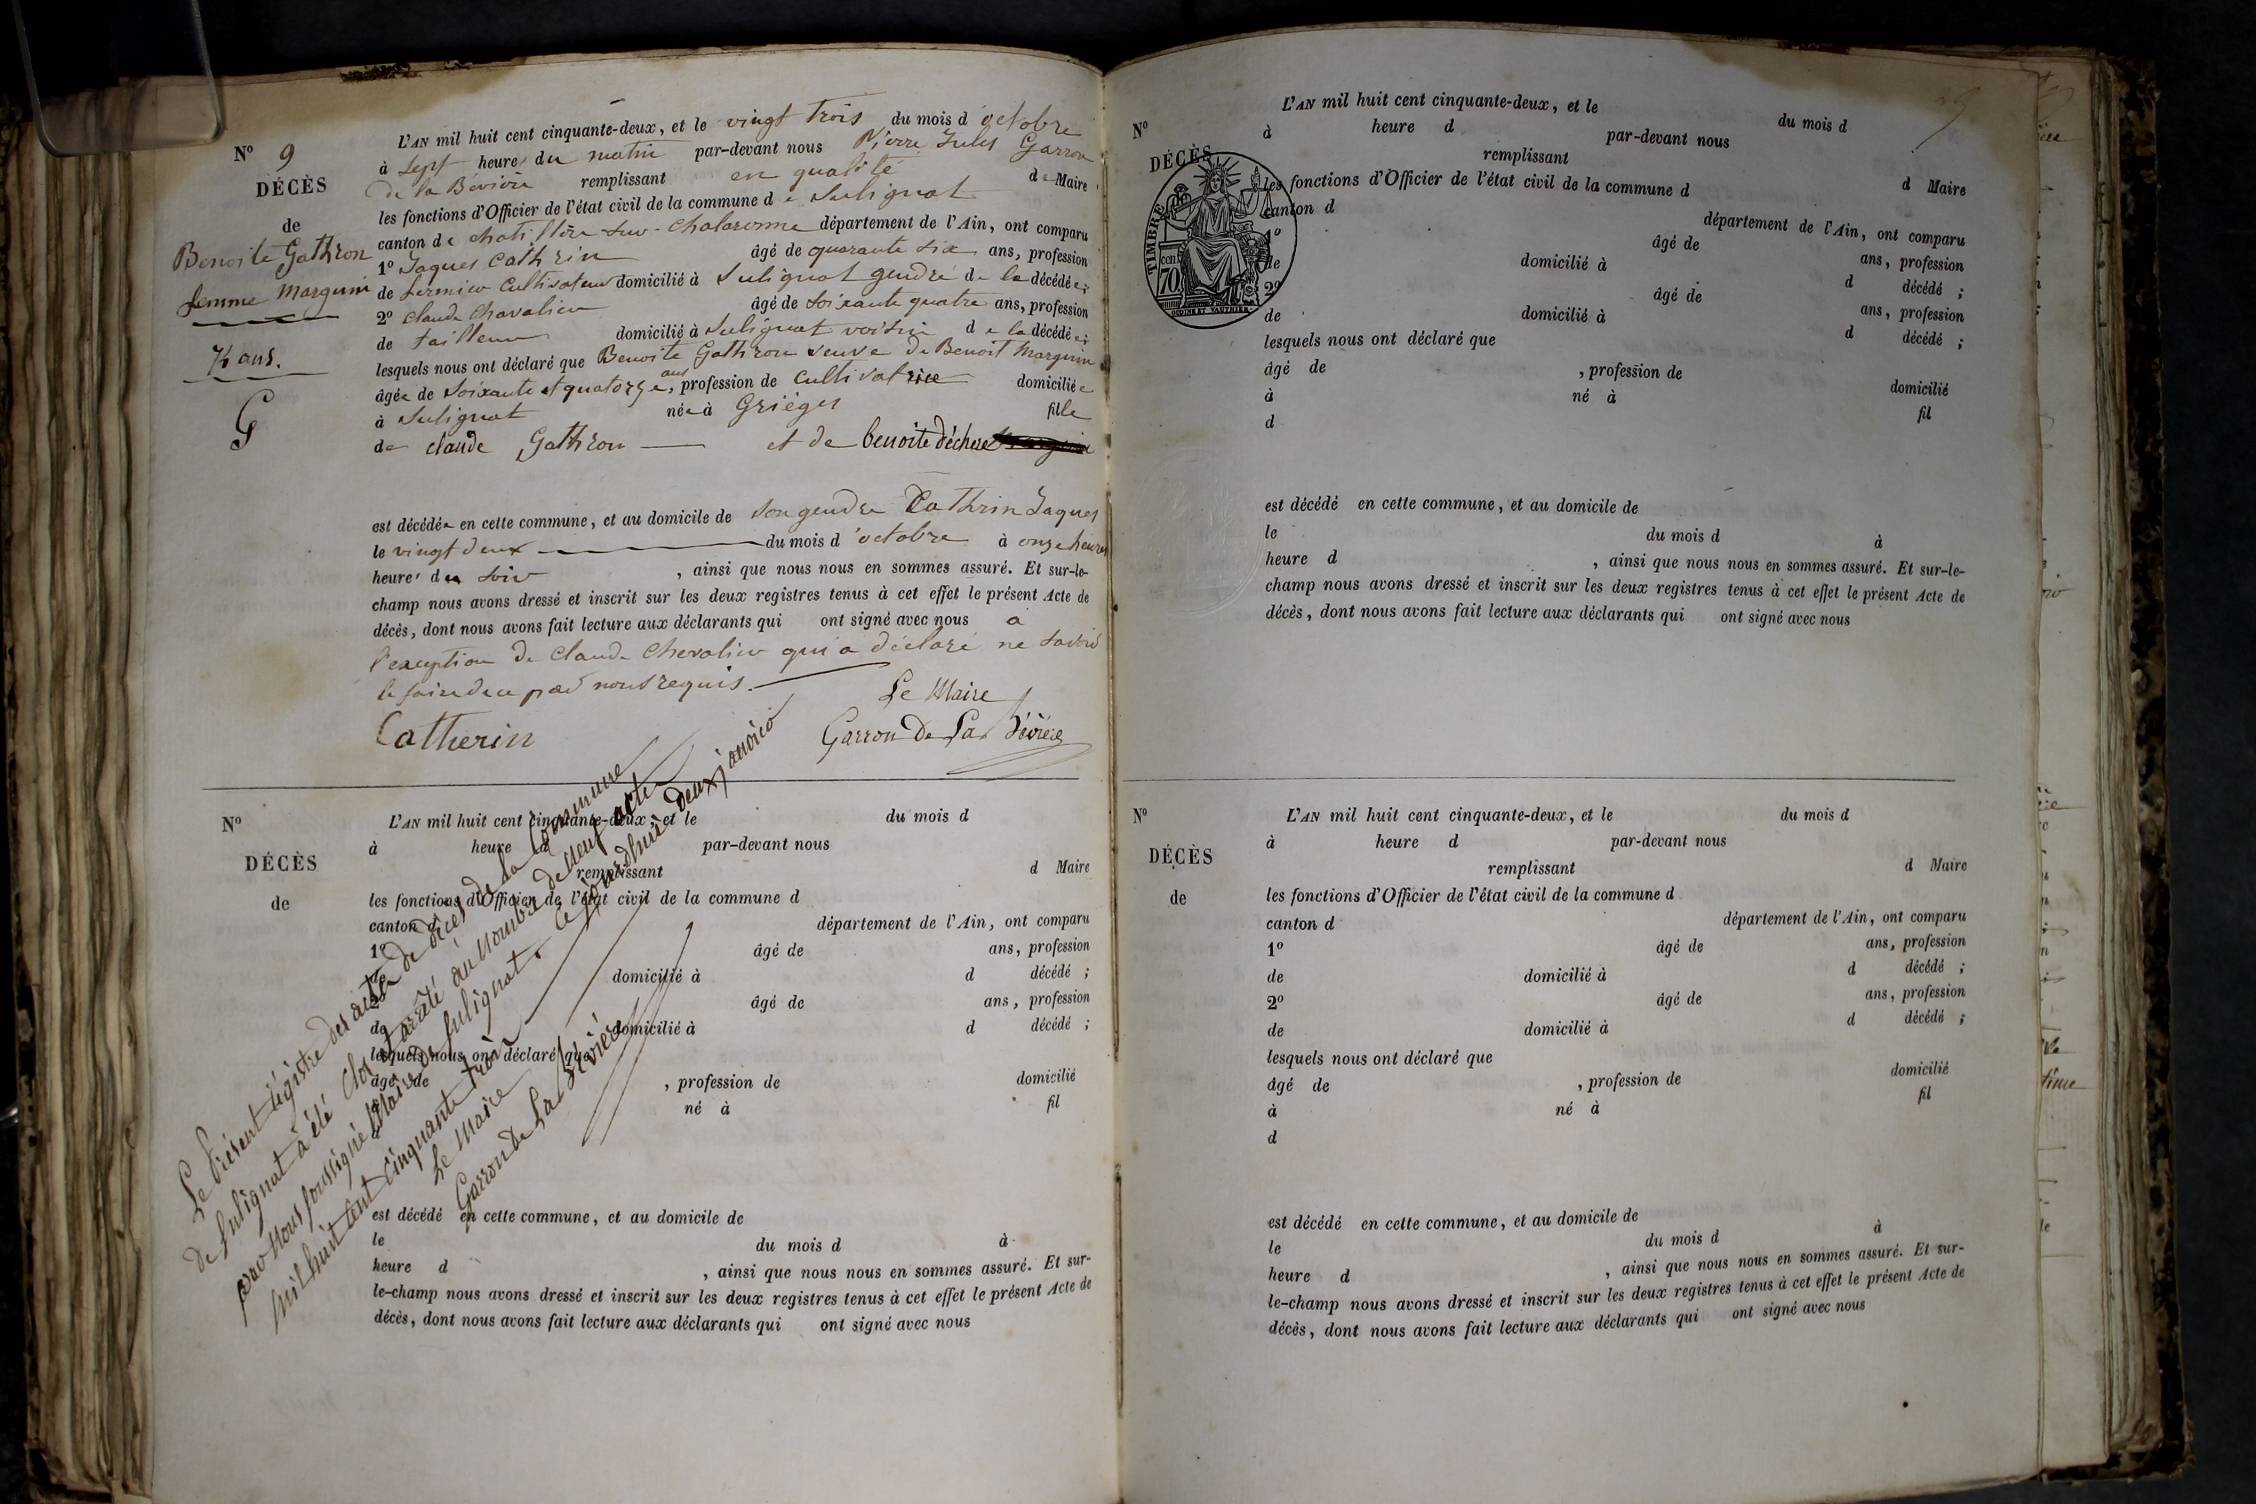 N° 9
DÉCÈS
de
Benoite Gathron
femme Marguin
74 ans.
G
L'AN mil huit cent cinquante-deux, et le vingt trois du mois d'octobre
à Sept heures du matin par-devant nous Pierre Jules Garron
de la Bévière remplissant en qualité de Maire
les fonctions d'Officier de l'état civil de la commune de Sulignat
canton de chatillon-sur-Chalaronne département de l'Ain, ont comparu
1° Jaques Cathrin âgé de quarante six ans, profession
de fermier Cultivateur domicilié à Sulignat gendre de la décédée;
2° Claude Chavalier âgé de soixante quatre ans, profession
de tailleur domicilié à Sulignat voisin de la décédée;
lesquels nous ont déclaré que Benoite Gathron veuve de Benoit Marguin
âgée de Soixante et quatorze ans, profession de cultivatrice domiciliée
à Sulignat née à Grièges fille
de claude Gathron et de benoite déchere
est décédée en cette commune, et au domicile de son gendre Cathrin Jaques
le vingt deux du mois d'octobre à onze heures
heure du soir, ainsi que nous nous en sommes assuré. Et sur-le-
champ nous avons dressé et inscrit sur les deux registres tenus à cet effet le présent Acte de
décès, dont nous avons fait lecture aux déclarants qui ont signé avec nous a
l'exception de Claude Chevalier qui a déclaré ne savoir
le faire de ce par nous requis.
Le Maire
Catherin Garron De La Bévière
N°
DÉCÈS
de
L'AN mil huit cent cinquante-deux, et le du mois d
à heure d par-devant nous
remplissant d Maire
les fonctions d'Officier de l'état civil de la commune d
canton d département de l'Ain, ont comparu
1° âgé de ans, profession
de domicilié à d décédé ;
2° âgé de ans, profession
de domicilié à d décédé ;
lesquels nous ont déclaré que
âgé de , profession de domicilié
à né à fil
est décédé en cette commune, et au domicile de
le du mois d à
heure d , ainsi que nous nous en sommes assuré. Et sur-
le-champ nous avons dressé et inscrit sur les deux registres tenus à cet effet le présent Acte de
décès, dont nous avons fait lecture aux déclarants qui ont signé avec nous
Le Présent régistre des actes de décès de la Commune
de Sulignat à été clos et arrêté au nombre de neuf acte
par nous soussigné Maire de Sulignat. Ce jourdhui deux janvier
mil huit cent cinquante trois
Le Maire
Garron De La Bévière
N°
DÉCÈS
TIMBRE
70
L'AN mil huit cent cinquante-deux, et le du mois d
à heure d par-devant nous
remplissant d Maire
les fonctions d'Officier de l'état civil de la commune d
canton d département de l'Ain, ont comparu
1° âgé de ans, profession
de domicilié à d décédé ;
2° âgé de ans, profession
de domicilié à d décédé ;
lesquels nous ont déclaré que
âgé de , profession de domicilié
à né à fil
d
est décédé en cette commune, et au domicile de
le du mois d à
heure d , ainsi que nous nous en sommes assuré. Et sur-le-
champ nous avons dressé et inscrit sur les deux registres tenus à cet effet le présent Acte de
décès, dont nous avons fait lecture aux déclarants qui ont signé avec nous
N°
DÉCÈS
de
L'AN mil huit cent cinquante-deux, et le du mois d
à heure d par-devant nous
remplissant d Maire
les fonctions d'Officier de l'état civil de la commune d
canton d département de l'Ain, ont comparu
1° âgé de ans, profession
de domicilié à d décédé ;
2° âgé de ans, profession
de domicilié à d décédé ;
lesquels nous ont déclaré que
âgé de , profession de domicilié
à né à fil
d
est décédé en cette commune, et au domicile de
le du mois d à
heure d , ainsi que nous nous en sommes assuré. Et sur-
le-champ nous avons dressé et inscrit sur les deux registres tenus à cet effet le présent Acte de
décès, dont nous avons fait lecture aux déclarants qui ont signé avec nous